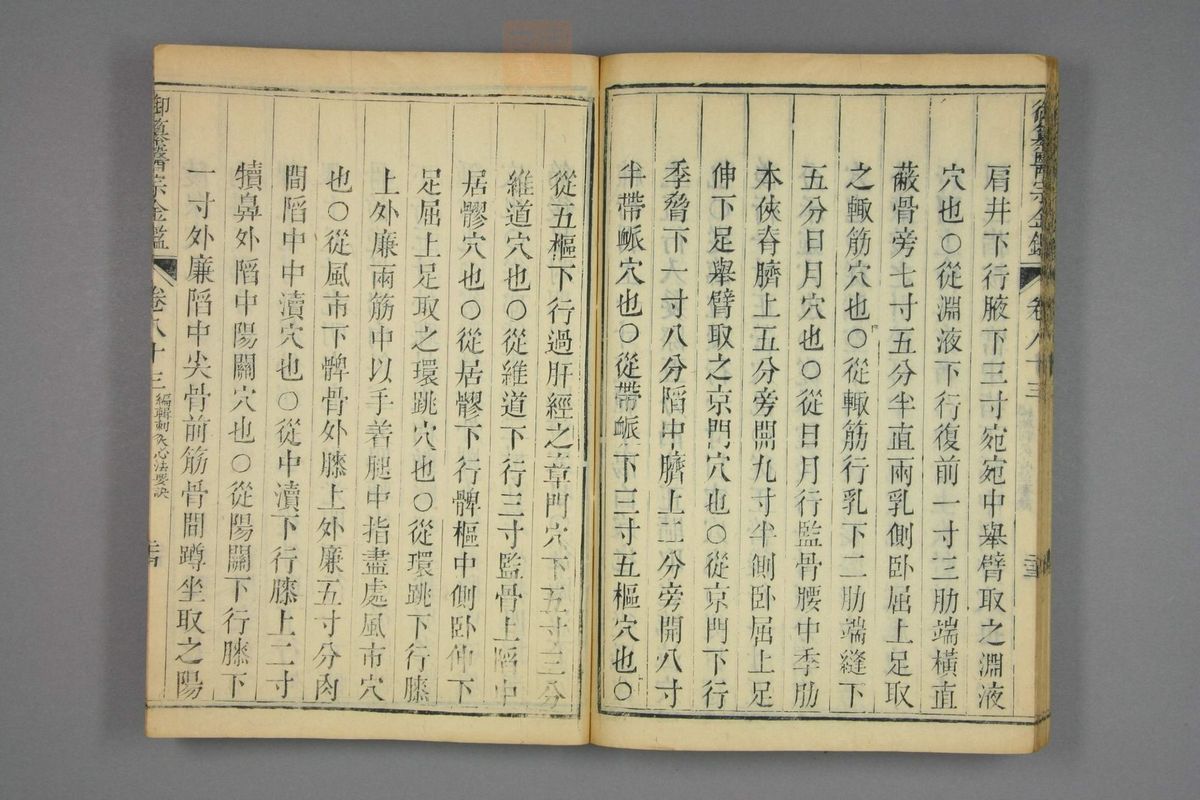 御纂醫宗金鑑 卷八十三
肩井下行腋下三寸宛宛中舉臂取之淵液
穴也〇從淵液下行復前一寸三肋端橫直
蔽骨旁七寸五分半直兩乳側卧屈上足取
之輒筋穴也〇從輒筋行乳下二肋端縫下
五分日月穴也〇從日月行監骨腰中季肋
本俠脊臍上五分旁開九寸半側卧屈上足
伸下足舉臂取之京門穴也〇從京門下行
季脅下一寸八分陷中臍上二分旁開八寸
半帶䘑穴也〇從帶䘑下三寸五樞穴也〇
從五樞下行過肝經之章門穴下五寸三分
維道穴也〇從維道下行三寸監骨上陷中
居髎穴也〇從居髎下行髀樞中側卧伸下
足屈上足取之環跳穴也〇從環跳下行膝
上外廉兩筋中以手着腿中指盡處風市穴
也〇從風市下髀骨外膝上外廉五寸分肉
間陷中中瀆穴也〇從中瀆下行膝上二寸
犢鼻外陷中陽關穴也〇從陽關下行膝下
一寸外廉陷中尖骨前筋骨間蹲坐取之陽
御纂醫宗金鑑 卷八十三 編輯刺灸心法要訣